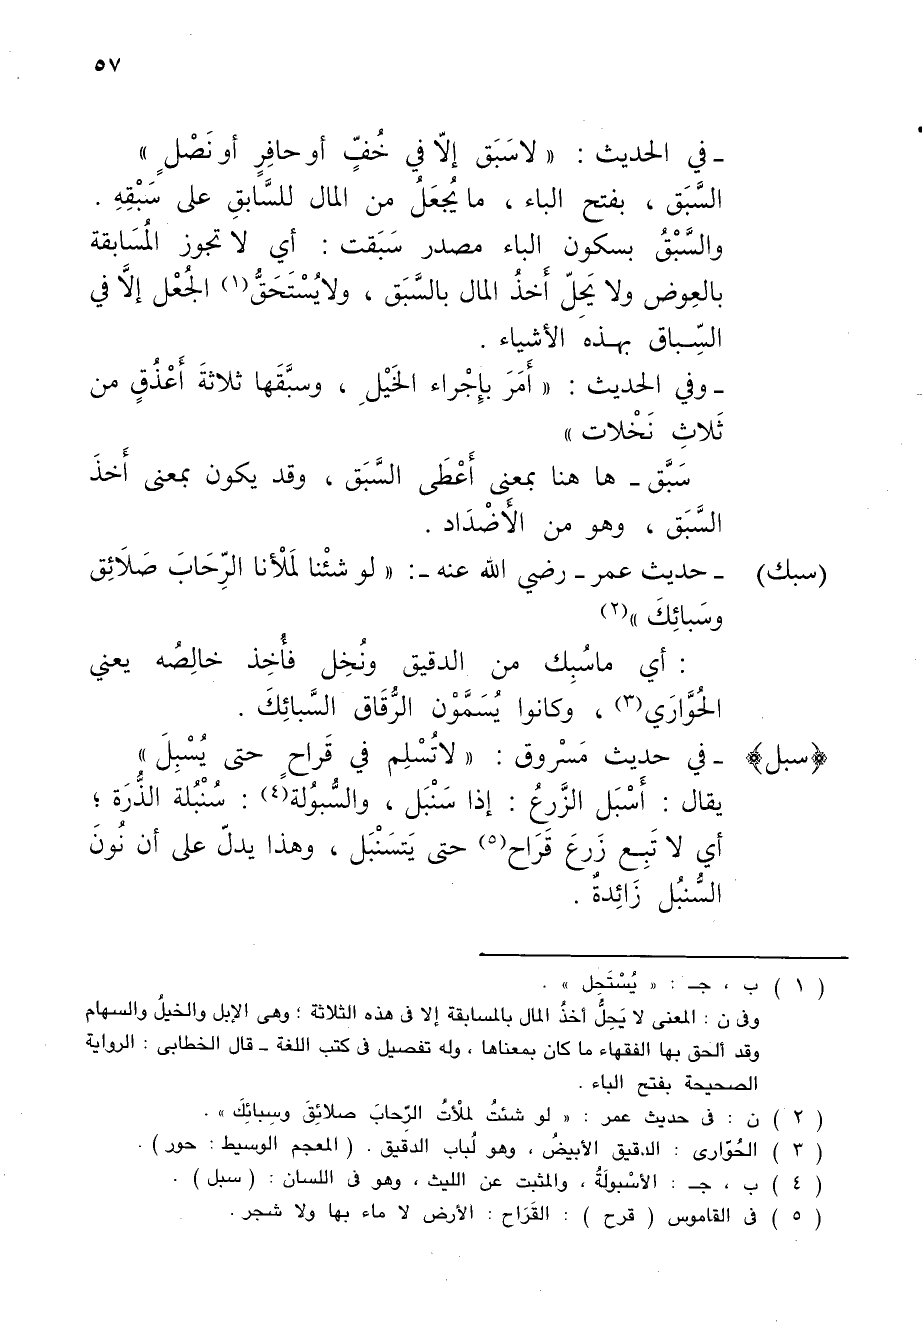 ٥٧
ـ في الحديث : « لا سَبَق إلّا في خُفٍّ أو حافِرٍ أو نَصْلٍ »
السَّبَق ، بفتح الباء ، ما يُجعَلُ من المال للسَّابقِ على سَبْقِهِ .
والسَّبْقُ بسكون الباء مصدر سَبَقت : أي لا تجوز المُسَابقة
بالعِوض ولا يَحِلّ أَخذُ المال بالسَّبَق ، ولايُسْتَحَقُّ(١) الجُعْل إلَّا في
السِّباق بهذه الأشياء .
ـ وفي الحديث : « أَمَرَ بإِجْراء الخَيْلِ ، وسَبَّقَها ثلاثةَ أَعْذُقٍ من
ثَلاثِ نَخْلات »
سَبَّق ـ ها هنا بمعنى أَعْطَى السَّبَق ، وقد يكون بمعنى أَخذَ
السَّبَق ، وهو من الأَضْدَاد .
(سبك) ـ حديث عمر ـ رضي الله عنه ـ: « لو شئْنا لَمْلأنا الرِّحَابَ صَلَائِق
وسَبائِكَ »(٢)
: أي ماسُبِك من الدقيق ونُخِل فأُخِذ خالِصُه يعني
الحُوَّارَي(٣) ، وكانوا يُسَمَّوْن الرُّقَاق السَّبائِكَ .
﴿سبل﴾ ـ في حديث مَسْروق : « لاتُسْلِم في قَراحٍ حتى يُسْبِلَ »
يقال : أَسْبَل الزَّرعُ : إذا سَنْبَل ، والسُّبُولة(٤) : سُنْبُلة الذُّرَة ؛
أي لا تَبِع زَرعَ قَرَاح(٥) حتى يَتَسَنْبَل ، وهذا يدلّ على أن نُونَ
السُّنبُل زَائِدةٌ .
( ١ ) ب ، جـ : « يُسْتَحِل » .
وفى ن : المعنى لا يَحِلُّ أخذُ المال بالمسابقة إلا فى هذه الثلاثة ؛ وهى الإبل والخيلُ والسهام
وقد ألحق بها الفقهاء ما كان بمعناها ، وله تفصيل فى كتب اللغة ـ قال الخطابى : الرواية
الصحيحة بفتح الباء .
( ٢ ) ن : فى حديث عمر : « لو شئتُ لملأتُ الرِّحابَ صلائِقَ وسبائِكَ » .
( ٣ ) الحُوّارى : الدقيق الأبيضُ ، وهو لُباب الدقيق . ( المعجم الوسيط : حور ) .
( ٤ ) ب ، جـ : الأسْبولَةُ ، والمثبت عن الليث ، وهو فى اللسان : ( سبل ) .
( ٥ ) فى القاموس ( قرح ) : القَرَاح : الأرض لا ماء بها ولا شجر .